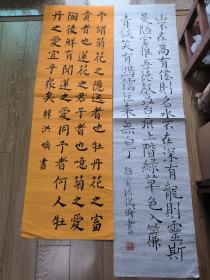 山不在高有僊則名水不在深有龍則靈斯
是陋室惟吾德馨苔痕上階綠草色入簾
青談笑有鴻儒往來無白丁
予謂菊花之隱逸者也牡丹花之富
貴者也蓮花之君子者也噫菊之愛
陶後鮮有聞蓮之愛同予者何人牡
丹之愛宜乎衆矣 書